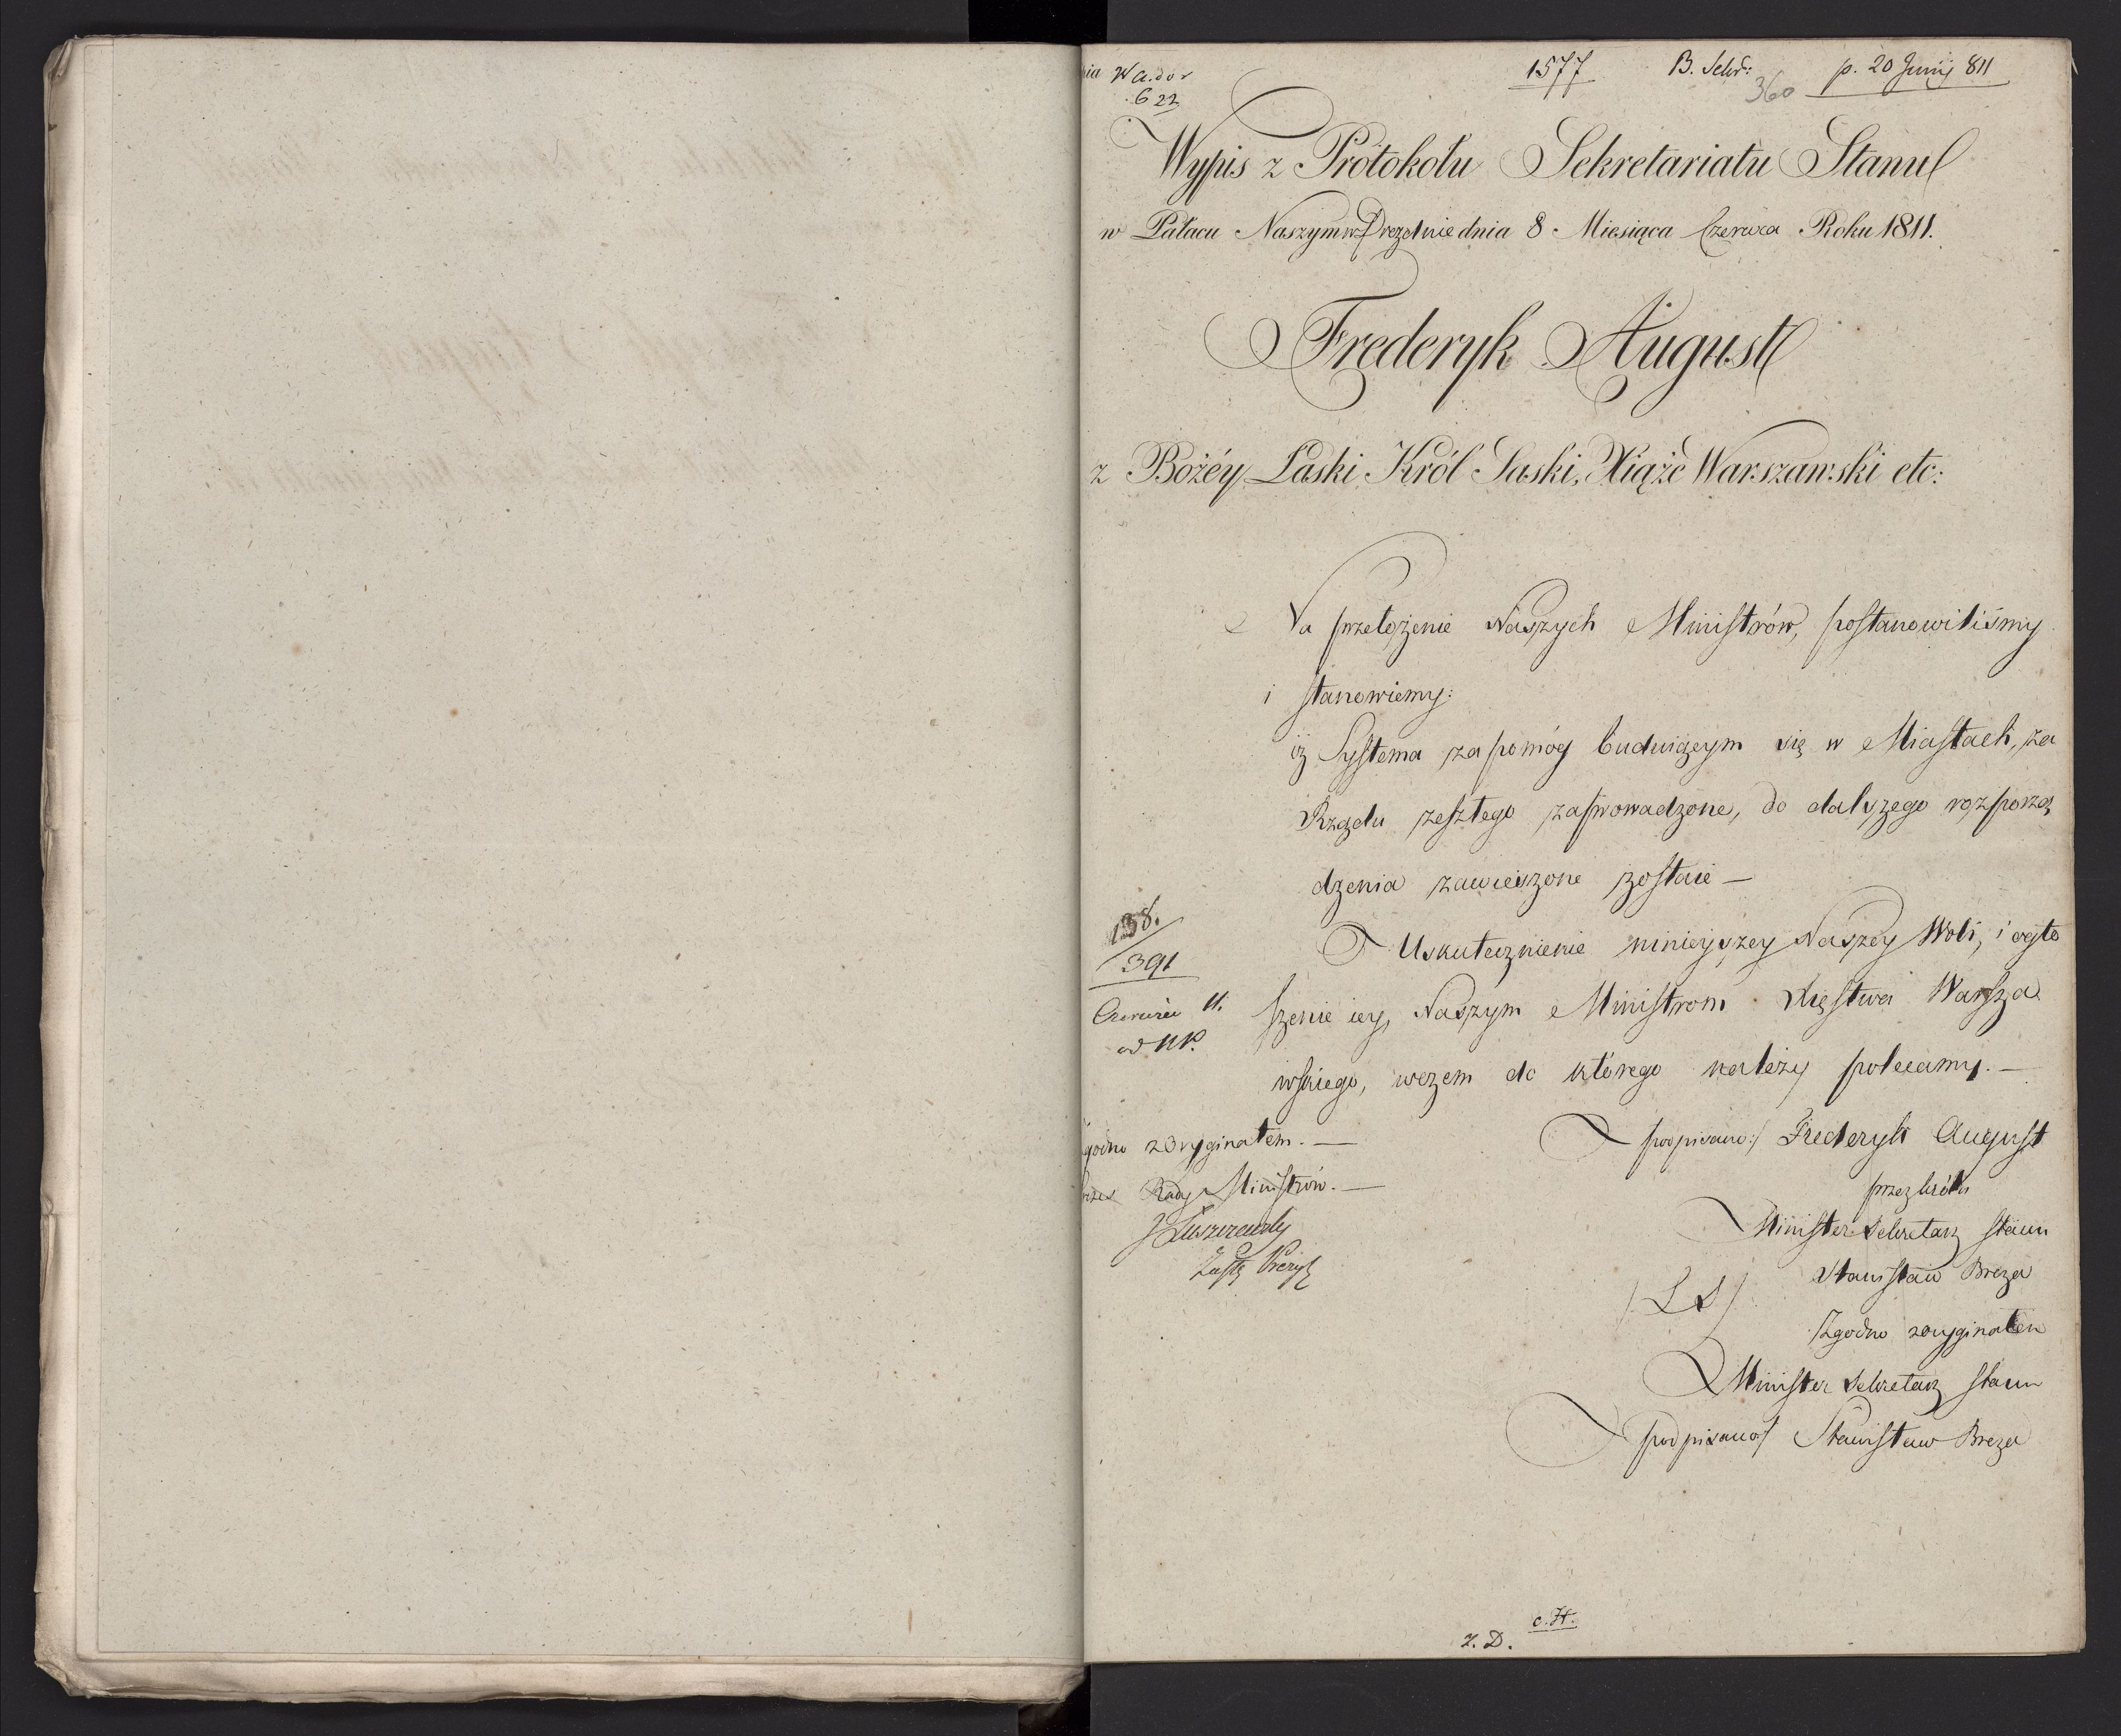 1577 B. Sekr: p. 20 Junij 811
360
622
Wypis z Protokołu Sekretariatu Stanu
w Pałacu Naszym w Dreznie dnia 8 Miesiąca Czerwca Roku 1811.
Frederyk August
z Bożéy Łaski Król Saski, Xiąże Warszawski etc:
Na przełożenie Naszych Ministrów, postanowiliśmy
i stanowiemy:
iż Systema zapomóg buduiącym się w Miastach, za
Rządu zeszłego zaprowadzone, do dalszego rozporzą
dzenia zawieszone zostaie —
Uskutecznienie ninieyszey Naszey Woli, i ogło
szenie iey, Naszym Ministrom Xięstwa Warsza
wskiego, wczem do którego należy polecamy. —
138.
391
Czerwca 11.
podpisano:/ Frederyk August
przez króla
Minister Sekretarz Stanu
Stanisław Breza
/LS/
Zgodno zoryginałem
Minister Sekretarz Stanu
podpisano/ Stanisław Breza
godno zOryginałem. —
Rady Ministrów. —
J Łuszczewski
Zastę Prezyd
c. H.
z. D.